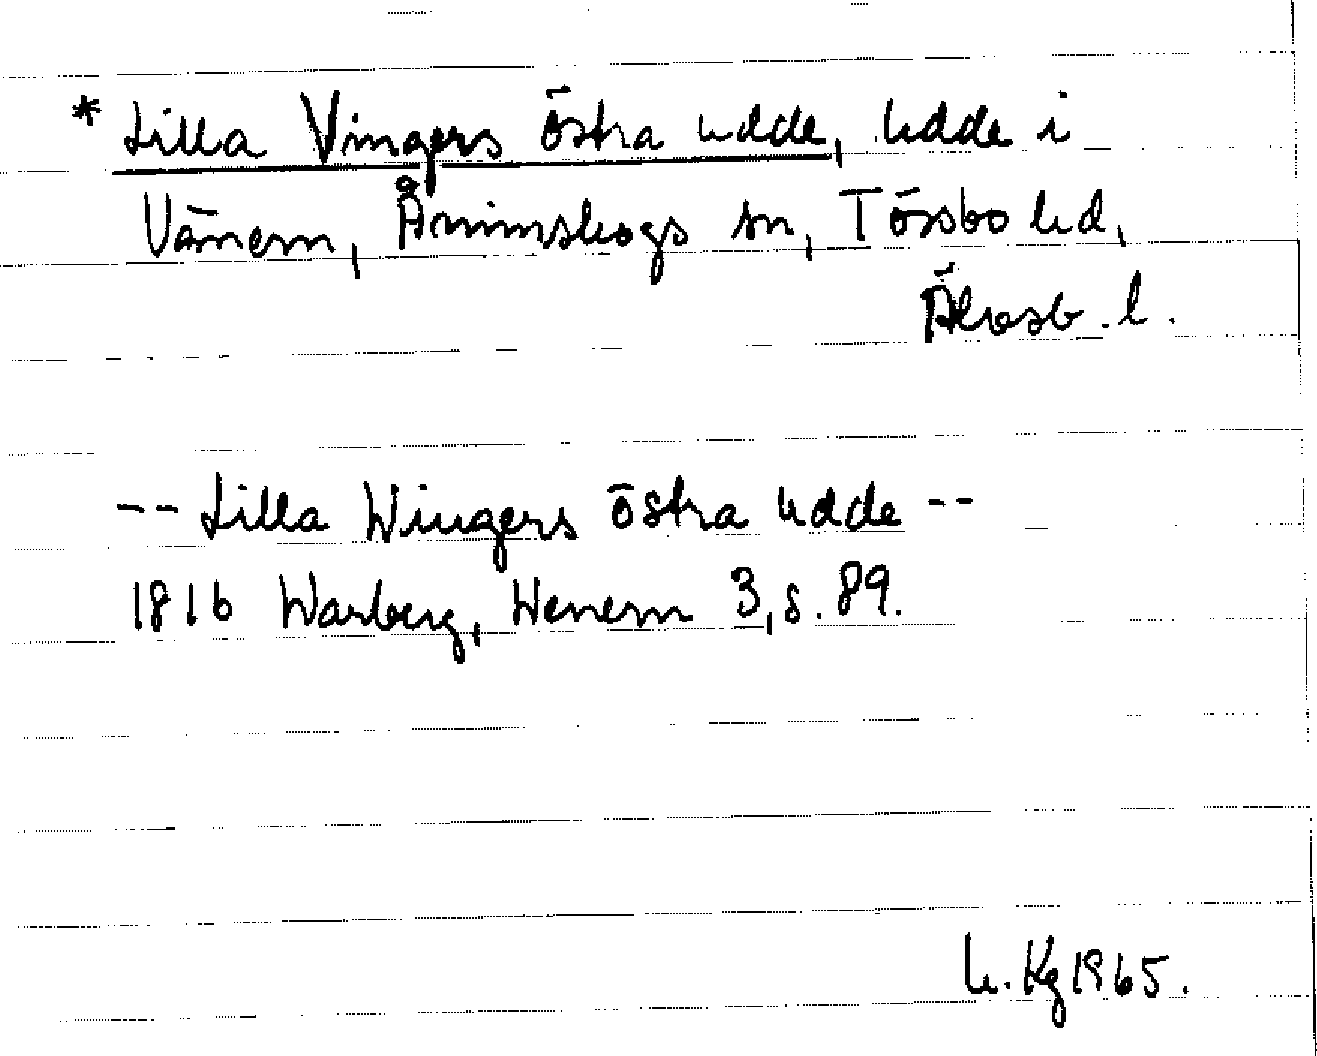 * Lilla Vingers östra udde, udde i
Vänern, Ånimskogs sn, Tössbo hd,
Älvsb. l.
-- Lilla Wingers östra udde --
1816 Warberg, Wenern 3, s. 89.
Kg 1965.